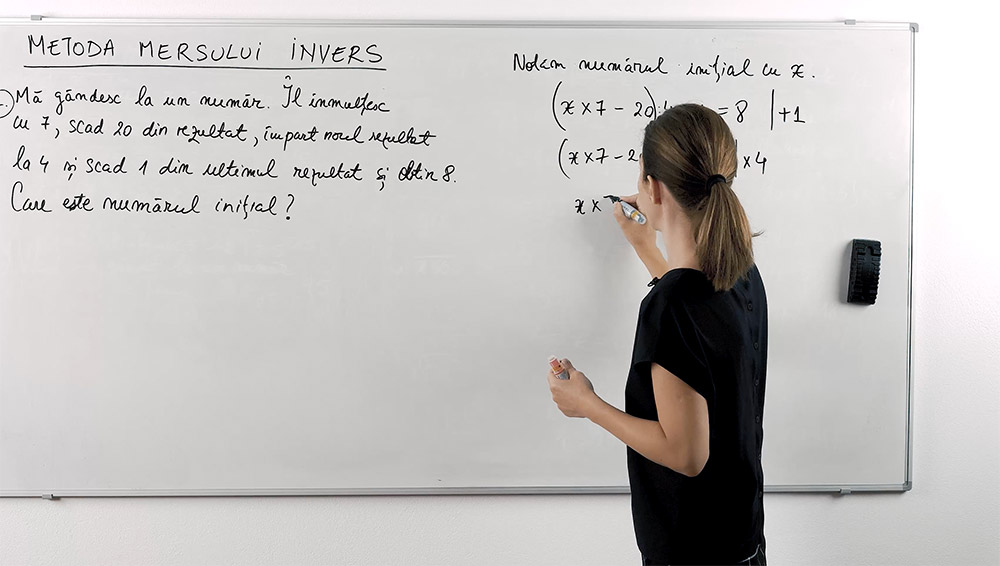 METODA MERSULUI INVERS
Mă gândesc la un număr. Îl înmulțesc
cu 7, scad 20 din rezultat, împart noul rezultat
la 4 și scad 1 din ultimul rezultat și obțin 8.
Care este numărul inițial?
Notăm numărul inițial cu x.
(x × 7 - 20) = 8 | +1
(x × 7 - 2 × 4
x ×